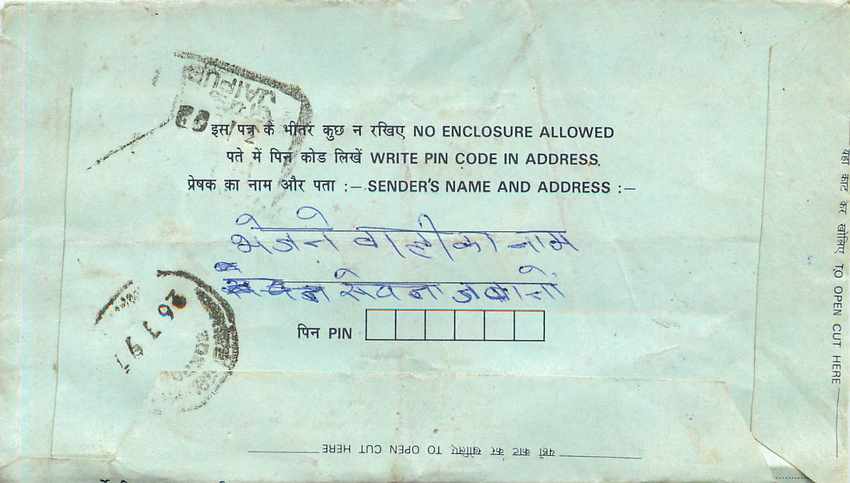 JAIPUR
इस पत्र के भीतर कुछ न रखिए NO ENCLOSURE ALLOWED
पते में पिन कोड लिखें WRITE PIN CODE IN ADDRESS.
प्रेषक का नाम और पता :— SENDER'S NAME AND ADDRESS :—
भेजने वाली का नाम
पिन PIN
26 3 91
यहाँ काट कर खोलिए TO OPEN CUT HERE
यहाँ काट कर खोलिए TO OPEN CUT HERE